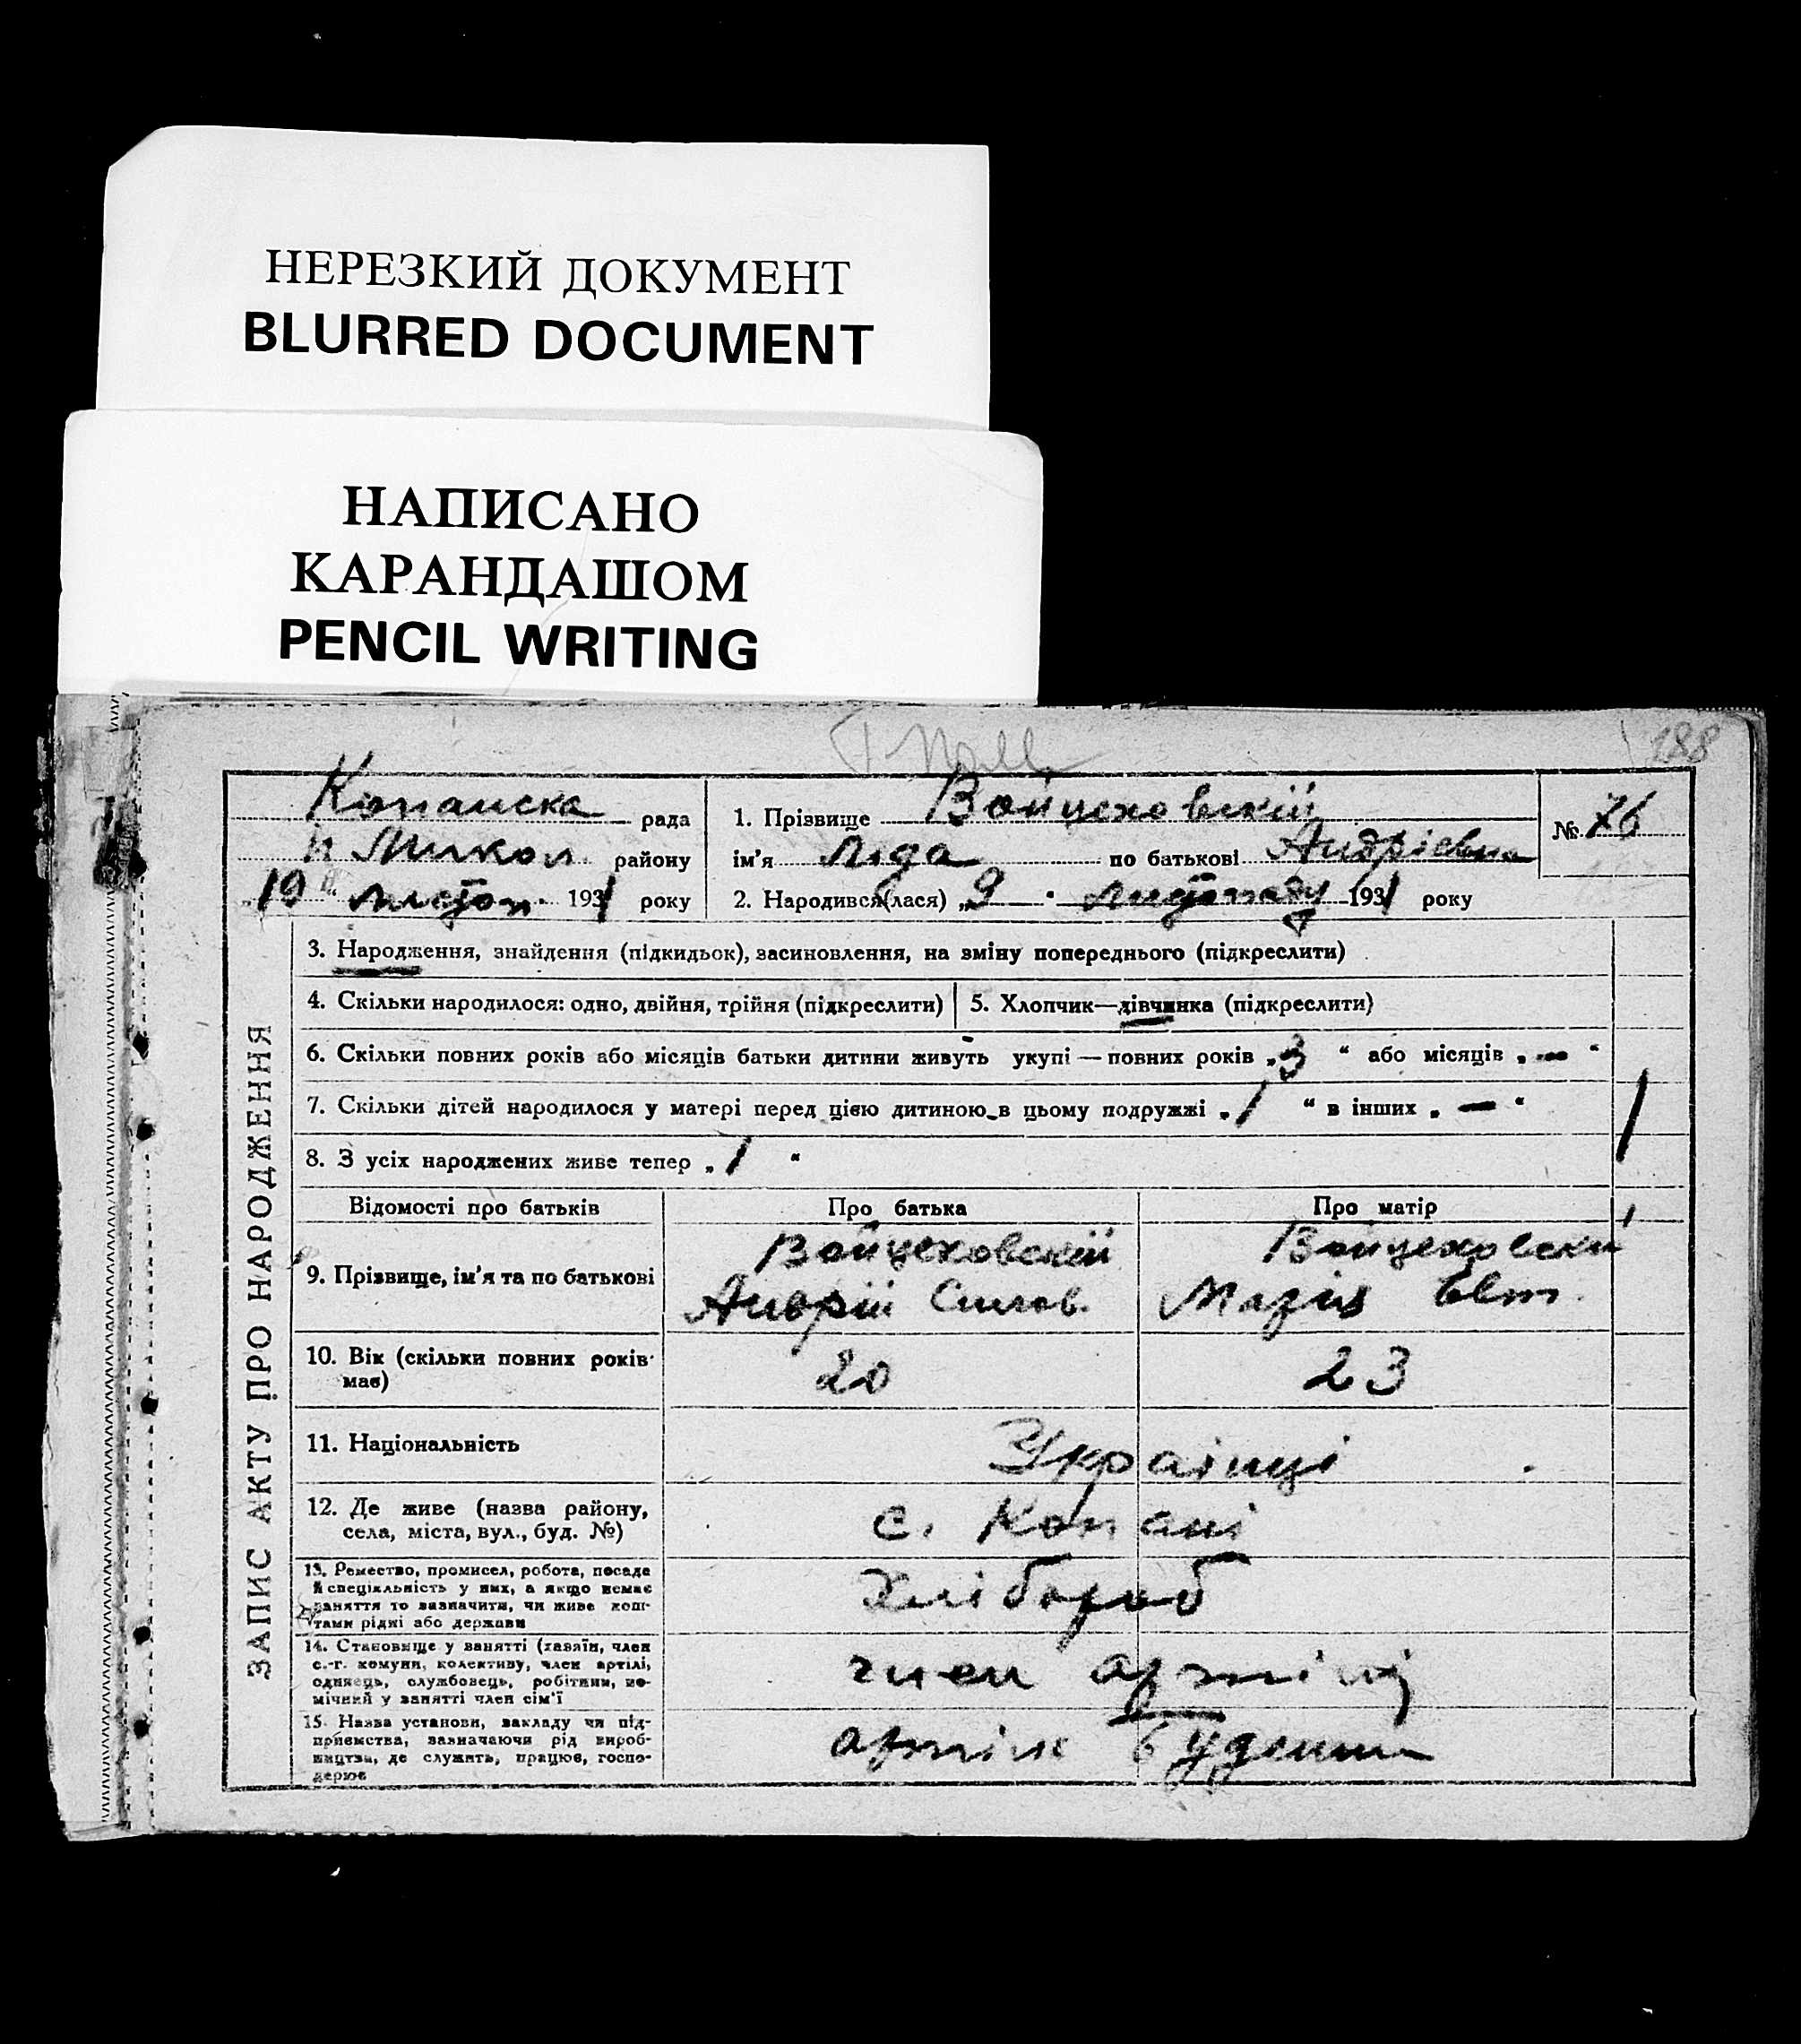 НЕРЕЗКИЙ ДОКУМЕНТ
BLURRED DOCUMENT
НАПИСАНО
КАРАНДАШОМ
PENCIL WRITING
188
Копанска рада
Н Микол. району
"19" листоп. 1931 року
1. Прізвище Войцеховскій
ім'я Ліда по батькові Андрієвна
2. Народився(лася) "9" листопаду 1931 року
№ 76
ЗАПИС АКТУ ПРО НАРОДЖЕННЯ
3. Народження, знайдення (підкидьок), засиновлення, на зміну попереднього (підкреслити)
4. Скільки народилося: одно, двійня, трійня (підкреслити)
5. Хлопчик—дівчинка (підкреслити)
6. Скільки повних років або місяців батьки дитини живуть укупі — повних років „3“ або місяців „—“
7. Скільки дітей народилося у матері перед цією дитиною в цьому подружжі „1“ в інших „—“
8. З усіх народжених живе тепер „1“
Відомості про батьків
Про батька
Про матір
9. Прізвище, ім'я та по батькові
Войцеховскій
Андрій
Войцеховски
Марія Евт.
10. Вік (скільки повних років
має)
20
23
11. Національність
Украінці
12. Де живе (назва району,
села, міста, вул., буд. №)
с. Копані
13. Ремество, промисел, робота, посада
й спеціяльність у них, а якщо немає
заняття то зазначити, чи живе кош-
тами рідні або держави
Хлібороб
14. Становище у занятті (хазяїн, член
с.-г. комуни, колективу, член артілі,
одинець, службовець, робітник, по-
мічний у занятті член сім'ї
член артілі
15. Назва установи, закладу чи під-
приємства, зазначаючи рід вироб-
ництва, де служить, працює, госпо-
дарює
артіль Буденни